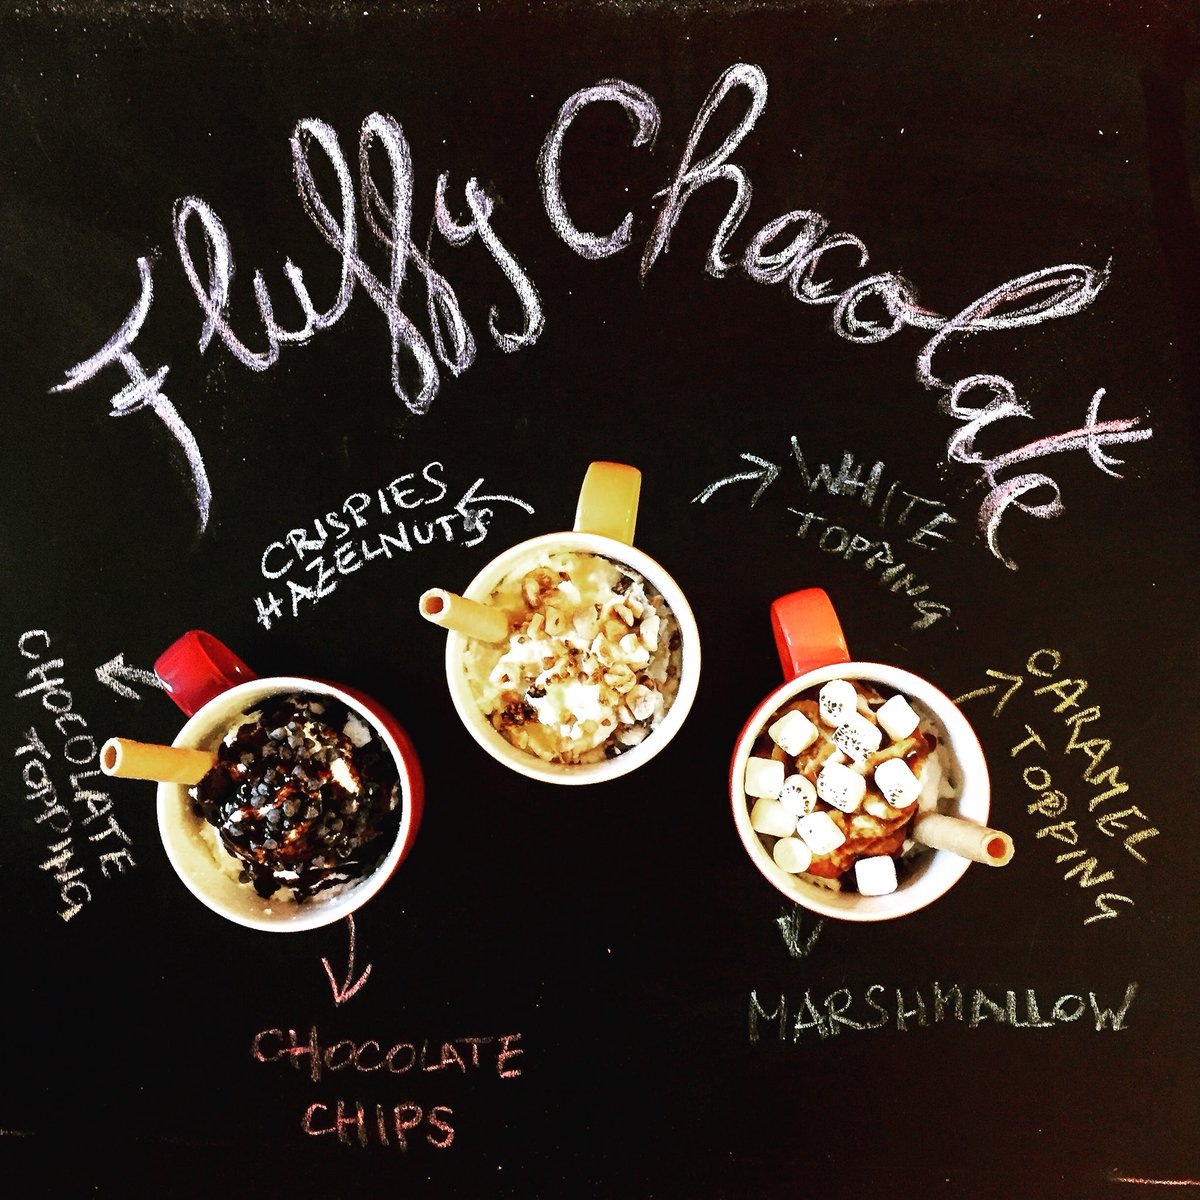 Fluffy Chocolate
CRISPIES
HAZELNUTS
WHITE
TOPPING
CHOCOLATE
TOPPING
CARAMEL
TOPPING
MARSHMALLOW
CHOCOLATE
CHIPS